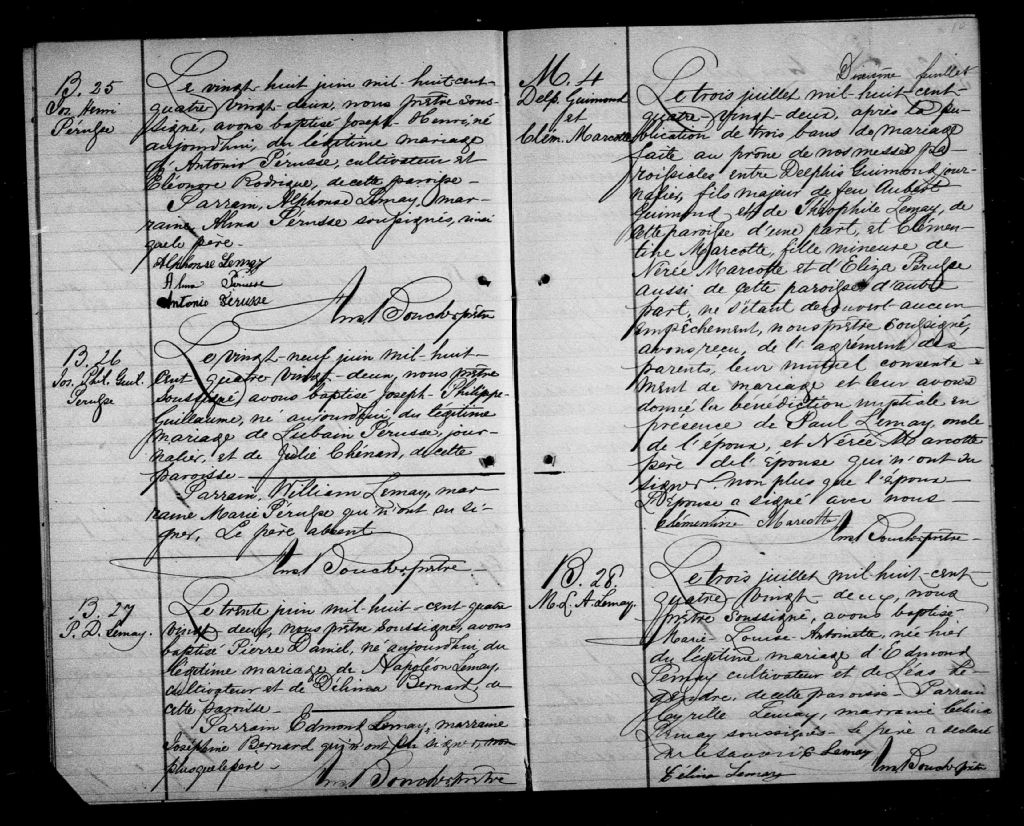 B. 25
Jos. Henri
Pérusse
Le vingt huit juin mil-huit-cent-
quatre vingt-deux, nous prêtre sous-
signé, avons baptisé Joseph-Henri, né
aujourd'hui, du légitime mariage
d'Antonio Pérusse, cultivateur et
Eléonore Rodrigue, de cette paroisse-
Parrain, Alphonse Lemay, mar-
raine Alma Pérusse soussignés, ainsi
que le père-
Alphonse Lemay
Alma Pérusse
Antonio Pérusse
Boucher ptre
B. 26
Jos. Phil. Guil.
Perusse
Le vingt-neuf juin mil huit-
cent quatre vingt-deux, nous prêtre
soussigné avons baptisé Joseph-Philippe-
Guillaume, né aujourd'hui, du légitime
mariage de Lubain Pérusse, jour-
nalier, et de Julie Chénard, de cette
paroisse
Parrain, William Lemay, mar-
raine Marie Pérusse qui n'ont su si-
gner. Le père absent
Boucher, prêtre-
B. 27
P. D. Lemay.
Le trente juin mil huit-cent quatre
vingt deux, nous prêtre soussigné, avons
baptisé Pierre Daniel, né aujourd'hui du
légitime mariage de Napoléon Lemay,
cultivateur et de Délima Bernard, de
cette paroisse-
Parrain Edmond Lemay, marraine
Joséphine Bernard qui n'ont su signer, non
plus que le père-
Boucher, prêtre
Dixième feuillet
M. 4
Delp. Guimond
et
Clém. Marcotte
Le trois juillet mil-huit-cent-
quatre vingt-deux, après la pu-
blication de trois bans de mariage
faite au prône de nos messes pa-
roissiales entre Delphis Guimond jour-
nalier, fils majeur de feu Aubert
Guimond et de Théophile Lemay, de
cette paroisse d'une part, et Clémen-
tine Marcotte, fille mineure de
Nérée Marcotte et d'Eliza Pérusse
aussi de cette paroisse d'autre
part, ne s'étant découvert aucun
empêchement, nous prêtre soussigné,
avons reçu, de l'agrément des
parents, leur mutuel consente-
ment de mariage et leur avons
donné la bénédiction nuptiale en
présence de Paul Lemay, oncle
de l'époux, et Nérée Marcotte
père de l'épouse qui n'ont su
signer non plus que l'époux-
L'épouse a signé avec nous-
Clémentine Marcotte
Boucher, prêtre-
B. 28.
M. L. A. Lemay.
Le trois juillet mil-huit-cent
quatre vingt-deux, nous
prêtre soussigné, avons baptisé
Marie-Louise-Antoinette, née hier
du légitime mariage d'Edmond
Lemay cultivateur et de Léas Le-
gendre, de cette paroisse- Parrain
Cyrille Lemay, marraine Célina
Lemay soussignés- le père a déclaré
ne le savoir C Lemay
Célina Lemay
Boucher ptre